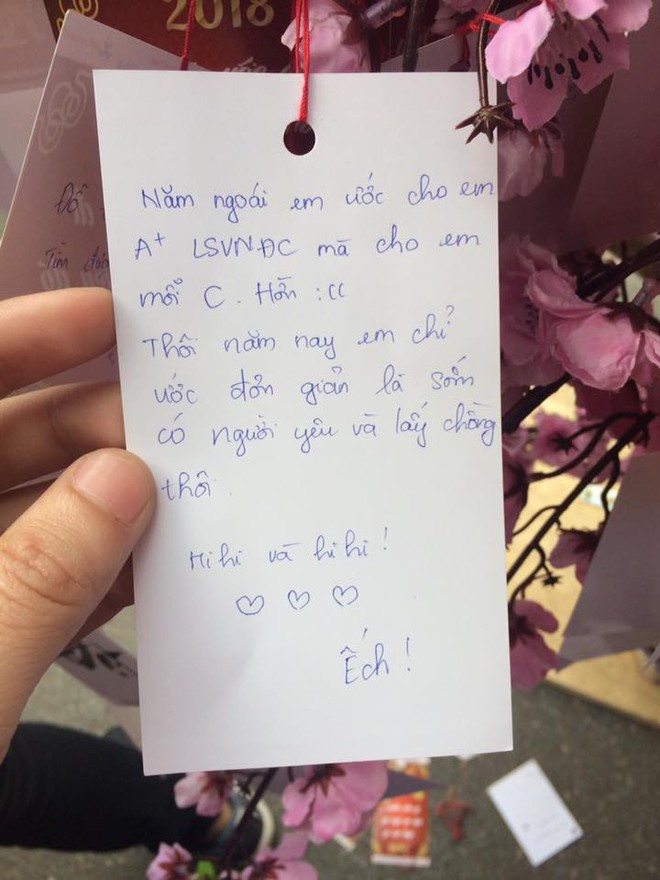 2018
Đỗ
Tiền
Năm ngoái em ước cho em
A+ LSVNĐC mà cho em
mỗi C. Hỗn :((
Thôi năm nay em chỉ
ước đơn giản là sớm
có người yêu và lấy chồng
thôi.
Hi hi và hi hi!
Ếch!